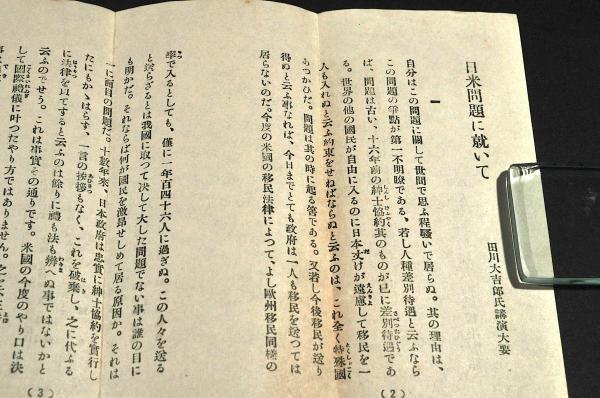 日米問題に就いて
田川大吉郎氏講演大要
一
自分はこの問題に關して世間で思ふ程騷いで居らぬ。其の理由は、
この問題の爭點が第一不明瞭である、若し人種差別待遇と云ふなら
ば、問題は古い、十六年前の紳士協約其のものが已に差別待遇であ
る。世界の他の國民が自由に入るのに日本丈けが遠慮して移民を一
人も入れぬと云ふ約束をせねばならぬと云ふのは、これ全く特殊國
あつかひだ。問題は其の時に起る筈である。又若し今後移民が送り
得ぬと云ふ事なれば、今日までとても政府は一人も移民を送つては
居らないのだ。今度の米國の移民法律によつて、よし歐州移民同樣の
(2)
率で入るとしても、僅に一年百四十六人に過ぎぬ。この人々を送る
と送らざるとは我國に取つて決して大した問題でない事は誰の目に
も明かだ。それならば何が國民を激昂せしめて居る原因か。それは
一に面目の問題だ。十數年來、日本政府は忠實に紳士協約を實行し
たにもかゝはらず、一言の挨拶もなく、これを破棄し、之に代ふる
に法律を以てすると云ふのは餘りに禮も法も辨へぬ事ではないかと
云ふのでせう。これは事實その通りです。米國の今度のやり口は決
して國際禮儀に叶つたやり方ではありません。
(3)